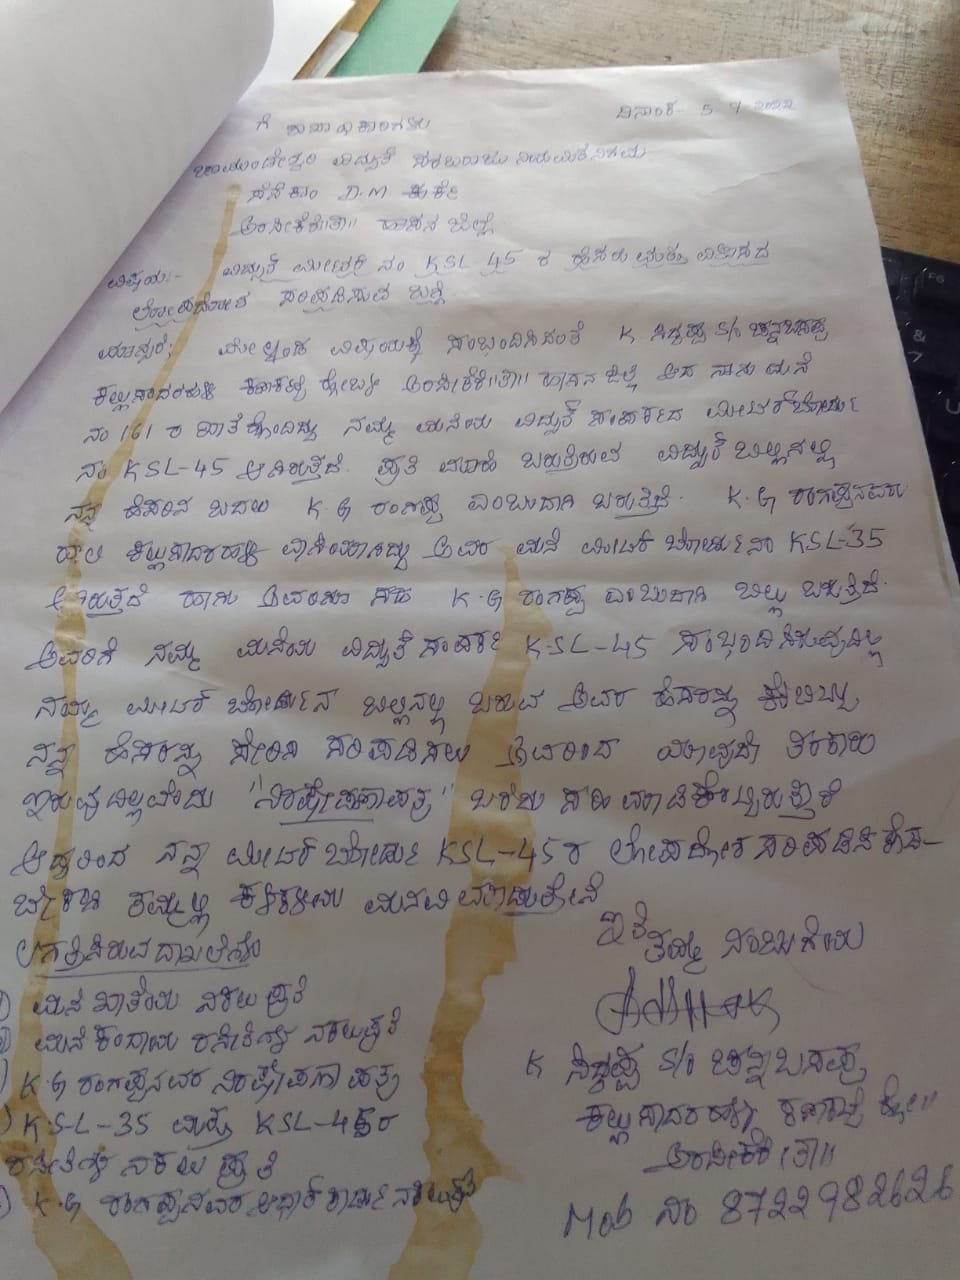 ದಿನಾಂಕ- 5 7 2022
ಗೆ
ಚಾಮುಂಡೇಶ್ವರಿ ವಿದ್ಯುತ್ ಸರಬರಾಜು ನಿಗಮ
D.M ಕುರ್ಕೆ
ಅರಸೀಕೆರೆ ತಾ॥ ಹಾಸನ ಜಿಲ್ಲೆ
ವಿಷಯ:- ವಿದ್ಯುತ್ ಮೀಟರ್ ನಂ KSL 45 ರ ಹೆಸರು ಮತ್ತು ವಿಳಾಸದ
ಲೋಪದೋಶ ಸರಿಪಡಿಸುವ ಬಗ್ಗೆ
ಮಾನ್ಯರೆ, ಮೇಲ್ಕಂಡ ವಿಷಯಕ್ಕೆ ಸಂಬಂದಿಸಿದಂತೆ K ಸಿದ್ದಪ್ಪ S/o ಚನ್ನಬಸಪ್ಪ
ಕಲ್ಲುಸಾದರಹಳ್ಳಿ ಕಣಕಟ್ಟೆ ಹೋಬಳಿ ಅರಸೀಕೆರೆ ತಾ॥ ಹಾಸನ ಜಿಲ್ಲೆ ಆದ ನಾನು ಮನೆ
ನಂ 161 ರ ಖಾತೆ ಹೊಂದಿದ್ದು ನಮ್ಮ ಮನೆಯ ವಿದ್ಯುತ್ ಸಂಪರ್ಕದ ಮೀಟರ್ ಬೋರ್ಡು
ನಂ KSL-45 ಆಗಿರುತ್ತದೆ. ಪ್ರತಿ ಬಾರಿ ಬರುತ್ತಿರುವ ವಿದ್ಯುತ್ ಬಿಲ್ಲಿನಲ್ಲಿ
ನನ್ನ ಹೆಸರಿನ ಬದಲು K.G ರಂಗಪ್ಪ ಎಂಬುದಾಗಿ ಬರುತ್ತಿದೆ. K.G ರಂಗಪ್ಪನವರು
ಹಾಲಿ ಕಲ್ಲುಸಾದರಹಳ್ಳಿ ವಾಸಿಯಾಗಿದ್ದು ಅವರ ಮನೆ ಮೀಟರ್ ಬೋರ್ಡು ನಂ KSL-35
ಆಗಿರುತ್ತದೆ ಹಾಗು ಅದರಲ್ಲೂ ಸಹ K.G ರಂಗಪ್ಪ ಎಂಬುದಾಗಿ ಬಿಲ್ಲು ಬರುತ್ತಿದೆ.
ಅವರಿಗೆ ನಮ್ಮ ಮನೆಯ ವಿದ್ಯುತ್ ಸಂಪರ್ಕ KSL-45 ಸಂಬಂದಿಸಿರುವುದಿಲ್ಲ
ನಮ್ಮ ಮೀಟರ್ ಬೋರ್ಡಿನ ಬಿಲ್ಲಿನಲ್ಲಿ ಬರುವ ಅವರ ಹೆಸರನ್ನು ಕೈಬಿಟ್ಟು
ನನ್ನ ಹೆಸರನ್ನು ಸೇರಿಸಿ ಸರಿಪಡಿಸಲು ಅವರಿಂದ ಯಾವುದೇ ತಕರಾರು
ಇರುವುದಿಲ್ಲವೆಂದು "ನಿರಪೇಕ್ಷಣಾಪತ್ರ" ಬರೆದು ಸಹಿ ಮಾಡಿಕೊಟ್ಟಿರುತ್ತಾರೆ
ಆದ್ದರಿಂದ ನನ್ನ ಮೀಟರ್ ಬೋರ್ಡು KSL-45ರ ಲೋಪದೋಶ ಸರಿಪಡಿಸಿಕೊಡ-
ಬೇಕಾಗಿ ತಮ್ಮಲ್ಲಿ ಕಳಕಳಿಯ ಮನವಿ ಮಾಡುತ್ತೇನೆ
ಲಗತ್ತಿಸಿರುವ ದಾಖಲೆಗಳು
ಇತಿ
ತಮ್ಮ ನಂಬುಗೆಯ
ಮನೆ ಖಾತೆಯ ನಕಲು ಪ್ರತಿ
ಮನೆ ಕಂದಾಯ ರಶೀತಿಗಳ ನಕಲು ಪ್ರತಿ
K.G ರಂಗಪ್ಪನವರ ನಿರಪೇಕ್ಷಣಾ ಪತ್ರ
KSL-35 ಮತ್ತು KSL-45ರ
ರಶೀತಿಗಳ ನಕಲು ಪ್ರತಿ
K.G ರಂಗಪ್ಪನವರ ಆಧಾರ್ ಕಾರ್ಡು ನಕಲು ಪ್ರತಿ
K ಸಿದ್ದಪ್ಪ S/o ಚನ್ನಬಸಪ್ಪ
ಕಲ್ಲುಸಾದರಹಳ್ಳಿ ಕಣಕಟ್ಟೆ ಹೋ॥
ಅರಸೀಕೆರೆ (ತಾ॥
Mob ನಂ 8722982626